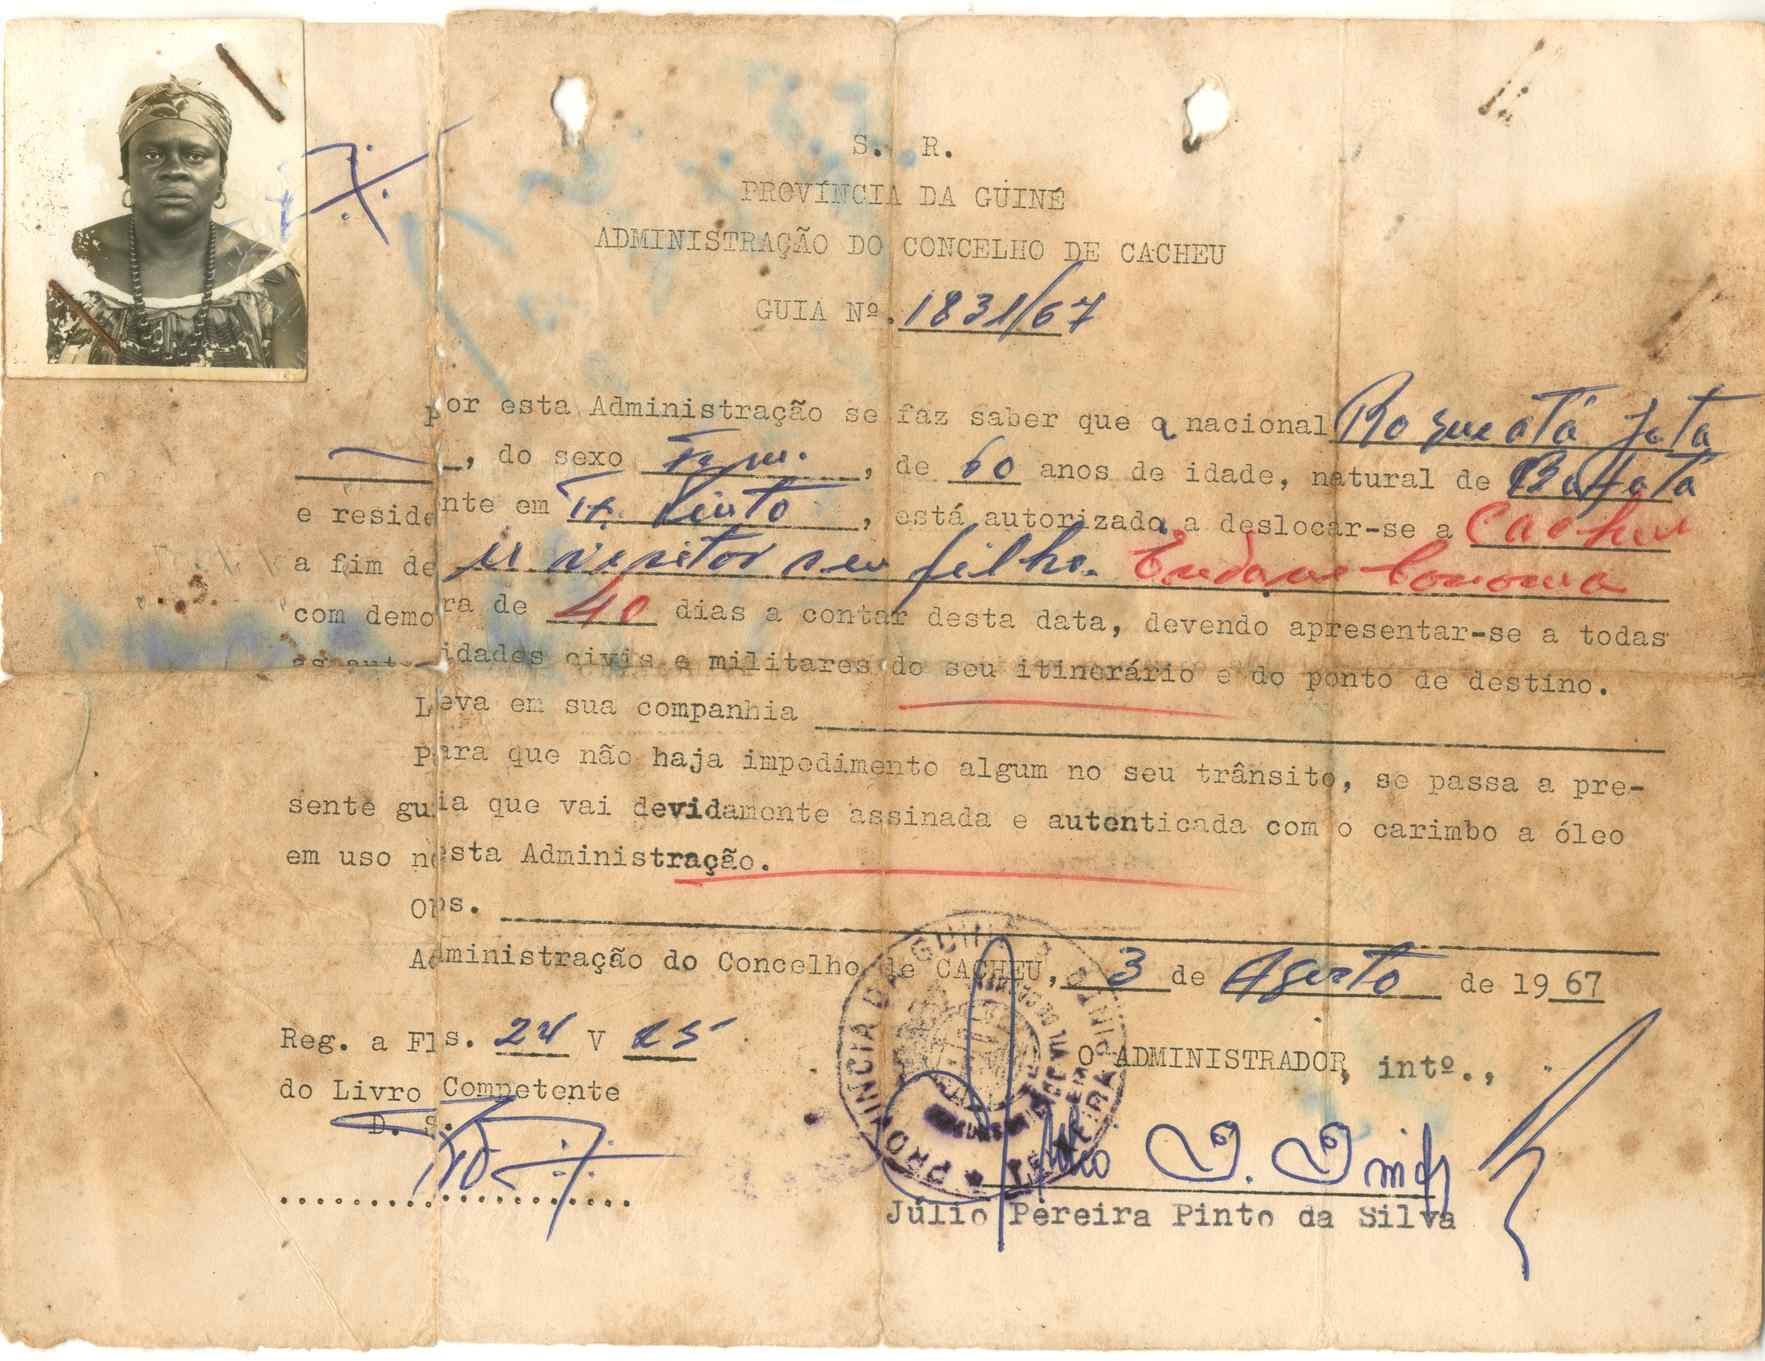 S. R.
PROVÍNCIA DA GUINÉ
ADMINISTRAÇÃO DO CONCELHO DE CACHEU
GUIA Nº. 1831/67
por esta Administração se faz saber que a nacional
, do sexo Fem. , de 60 anos de idade, natural de Bafatá
e residente em Tx. Pinto , está autorizada a deslocar-se a Cacheu
a fim de seu filho.
com demora de 40 dias a contar desta data, devendo apresentar-se a todas
as autoridades civis e militares do seu itinerário e do ponto de destino.
Leva em sua companhia
para que não haja impedimento algum no seu trânsito, se passa a pre-
sente guia que vai devidamente assinada e autenticada com o carimbo a óleo
em uso nesta Administração.
Obs.
Administração do Concelho de CACHEU, 3 de Agosto de 1967
Reg. a Fls. 24 V 25
do Livro Competente
O ADMINISTRADOR, intº.,
D. S.
PROVÍNCIA DA GUINÉ
TEIXEIRA PINTO
Júlio Pereira Pinto da Silva